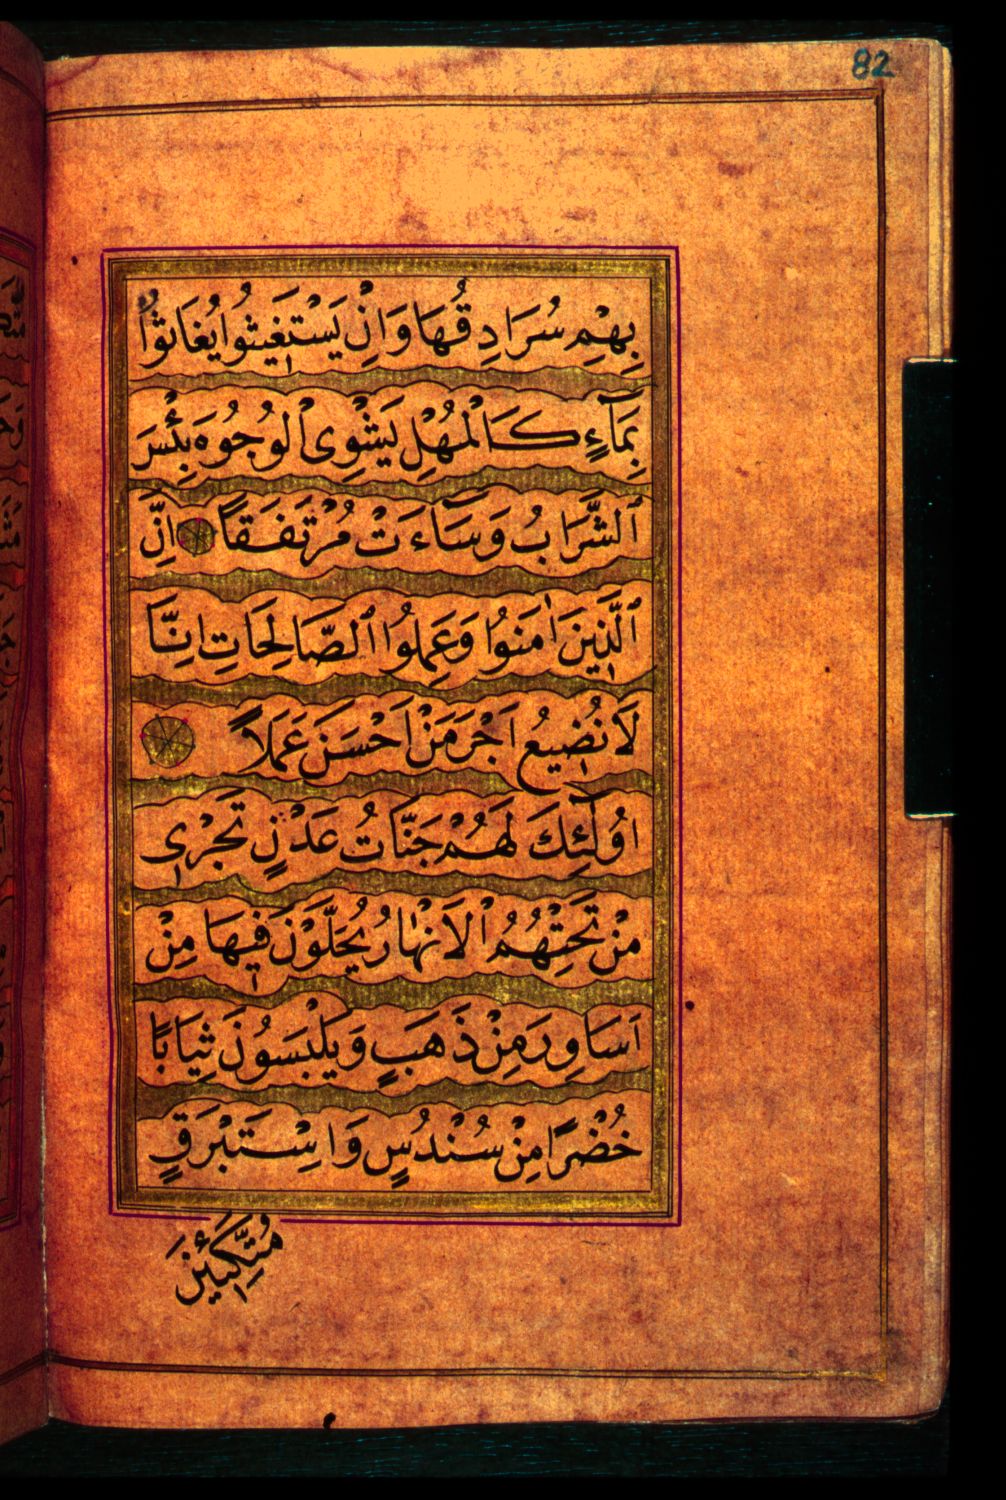 82
بِهِمْ سُرَادِقُهَا وَاِنْ يَسْتَغِيثُوا يُغَاثُوا
بِمَآءٍ كَالْمُهْلِ يَشْوِى الْوُجُوهَ بِئْسَ
ٱلشَّرَابُ وَسَآءَتْ مُرْتَفَقًا اِنَّ
ٱلَّذِينَ اٰمَنُوا وَعَمِلُوا ٱلصَّالِحَاتِ اِنَّا
لَا نُضِيعُ اَجْرَ مَنْ اَحْسَنَ عَمَلًا
اُولٰٓئِكَ لَهُمْ جَنَّاتُ عَدْنٍ تَجْرِى
مِنْ تَحْتِهُمُ الْاَنْهَارُ يُحَلَّوْنَ فِيهَا مِنْ
اَسَاوِرَ مِنْ ذَهَبٍ وَيَلْبَسُونَ ثِيَابًا
خُضْرًا مِنْ سُنْدُسٍ وَاِسْتَبْرَقٍ
مُتَّكِئِينَ